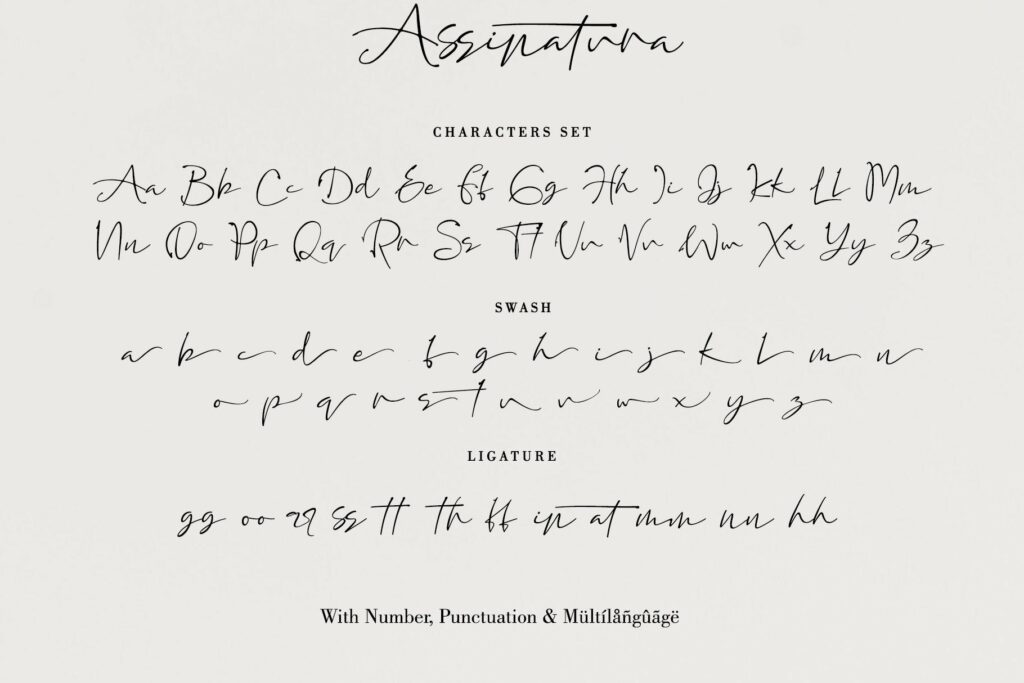 Assinatura
CHARACTERS SET
Aa Bb Cc Dd Ee Ff Gg Hh Ii Jj Kk Ll Mm
Nn Oo Pp Qq Rr Ss Tt Uu Vv Ww Xx Yy Zz
SWASH
a b c d e f g h i j k l m n
o p q r s t u v w x y z
LIGATURE
gg oo qq ss tt th ff in at mm nn hh
With Number, Punctuation & Mültílåñgûãgë